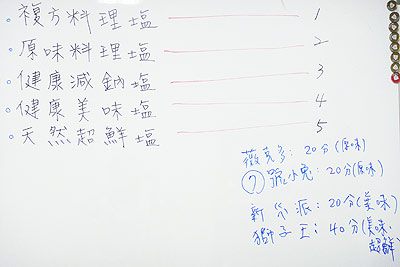 複方料理塩 1
原味料理塩 2
健康減鈉塩 3
健康美味塩 4
天然超鮮塩 5
薇克多：20分(原味)
⑦號小兔：20分(原味)
新公派：20分(美味)
獅子王：40分(美味、
超鮮)